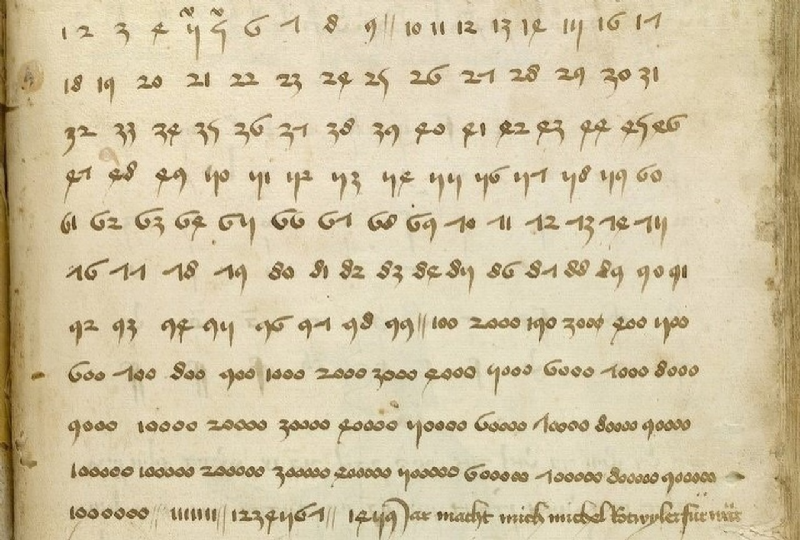 1 2 3 4 5 5 6 7 8 9 // 10 11 12 13 14 15 16 17
18 19 20 21 22 23 24 25 26 27 28 29 30 31
32 33 34 35 36 37 38 39 40 41 42 43 44 45 46
47 48 49 50 51 52 53 54 55 56 57 58 59 60
61 62 63 64 65 66 67 68 69 70 71 72 73 74 75
76 77 78 79 80 81 82 83 84 85 86 87 88 89 90 91
92 93 94 95 96 97 98 99 // 100 2000 190 3000 400 500
600 700 800 900 1000 2000 3000 4000 5000 6000 7000 8000
9000 10000 20000 30000 40000 50000 60000 70000 80000 90000
100000 100000 200000 300000 400000 500000 600000 700000 800000 900000
1000000 // 1111111 // 1234567 // 1459 Jar macht mich michel Rotwyler